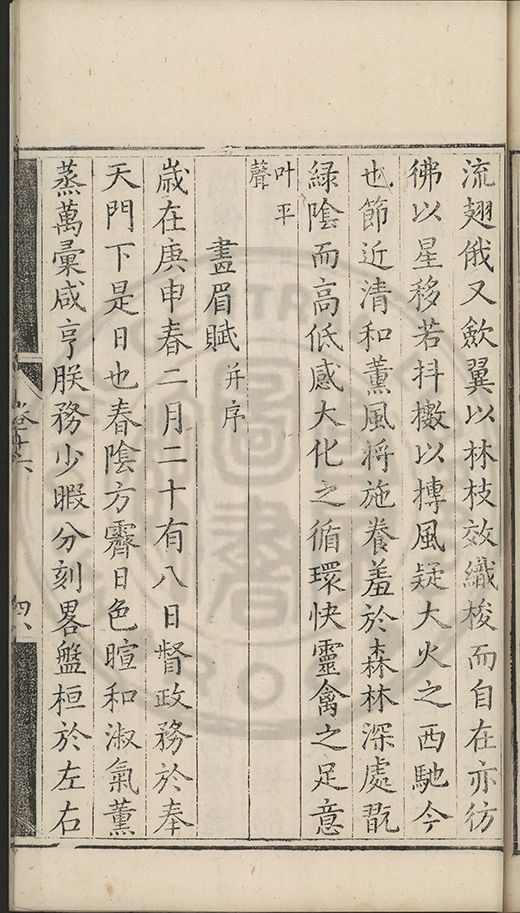 流翅俄又歛翼以林枝效織梭而自在亦彷
彿以星移若抖擻以摶風疑大火之西馳今
也節近清和薰風將施養羞於森林深處翫
綠陰而高低感大化之循環快靈禽之足意
叶平
聲
畫眉賦 并序
歲在庚申春二月二十有八日督政務於奉
天門下是日也春陰方霽日色暄和淑氣薰
蒸萬彙咸亨朕務少暇分刻畧盤桓於左右